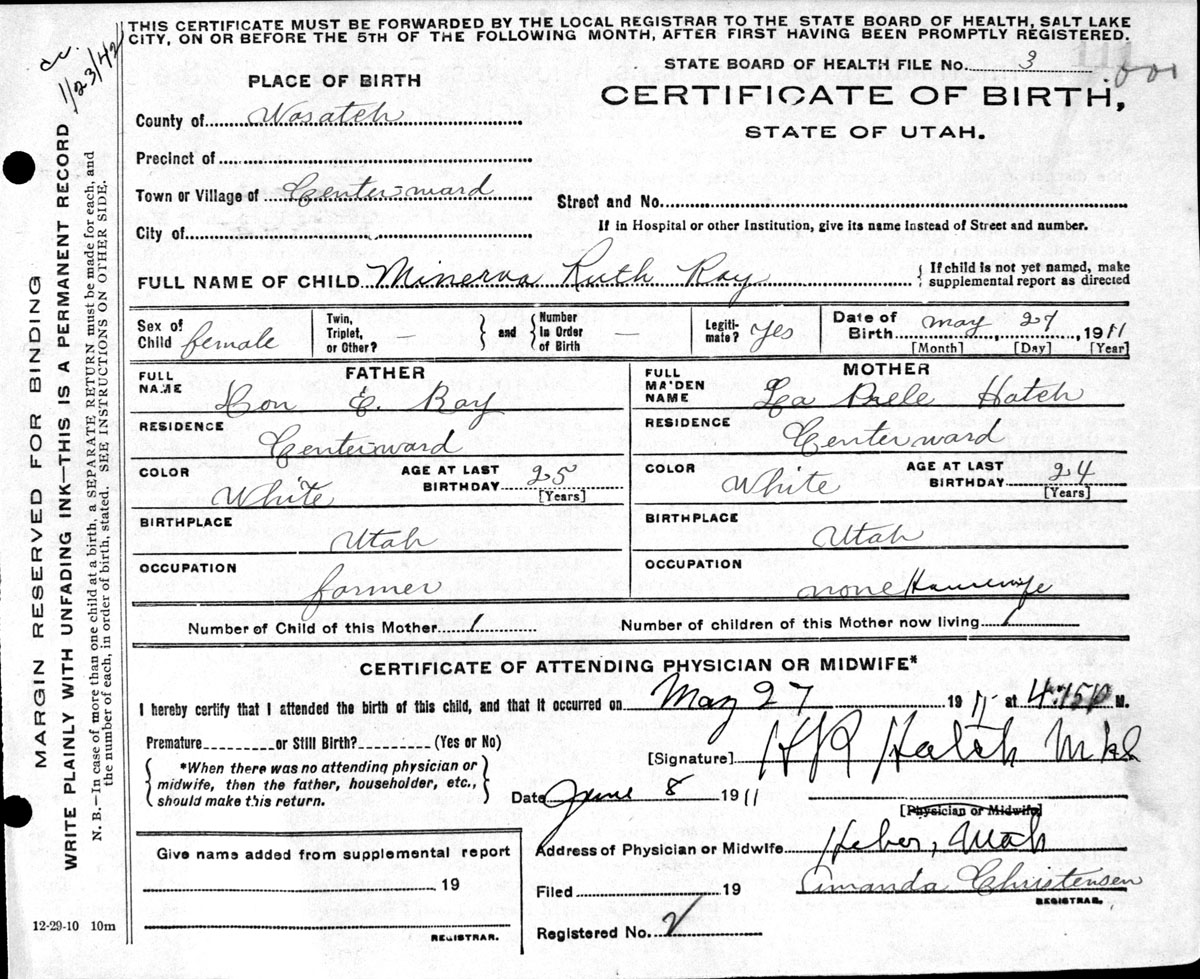 THIS CERTIFICATE MUST BE FORWARDED BY THE LOCAL REGISTRAR TO THE STATE BOARD OF HEALTH, SALT LAKE
CITY, ON OR BEFORE THE 5TH OF THE FOLLOWING MONTH, AFTER FIRST HAVING BEEN PROMPTLY REGISTERED.
1/23/42
STATE BOARD OF HEALTH FILE No. 3
PLACE OF BIRTH
CERTIFICATE OF BIRTH,
STATE OF UTAH.
County of Wasatch
Precinct of
Town or Village of Center-ward
City of
Street and No.
If in Hospital or other Institution, give its name instead of Street and number.
FULL NAME OF CHILD Minerva Ruth Ray
{ If child is not yet named, make
supplemental report as directed
Sex of Child female
Twin, Triplet, or Other? —
and
Number in Order of Birth —
Legiti-mate? Yes
Date of Birth May 27, 1911
[Month] [Day] [Year]
FATHER
FULL NAME
E. Ray
RESIDENCE
Center-ward
COLOR
White
AGE AT LAST BIRTHDAY 25
[Years]
BIRTHPLACE
Utah
OCCUPATION
farmer
MOTHER
FULL MAIDEN NAME
La Prele Hatch
RESIDENCE
Center ward
COLOR
White
AGE AT LAST BIRTHDAY 24
[Years]
BIRTHPLACE
Utah
OCCUPATION
none Housewife
Number of Child of this Mother 1
Number of children of this Mother now living 1
CERTIFICATE OF ATTENDING PHYSICIAN OR MIDWIFE*
I hereby certify that I attended the birth of this child, and that it occurred on May 27 1911 at M.
Premature or Still Birth? (Yes or No)
*When there was no attending physician or
midwife, then the father, householder, etc.,
should make this return.
[Signature] H R Hatch
Date June 8 1911
[Physician or Midwife]
Address of Physician or Midwife Heber, Utah
Give name added from supplemental report
19
REGISTRAR.
Filed 19
Amanda Christensen
REGISTRAR.
Registered No. 2
12-29-10 10m
MARGIN RESERVED FOR BINDING
WRITE PLAINLY WITH UNFADING INK—THIS IS A PERMANENT RECORD
N. B.—In case of more than one child at a birth, a SEPARATE RETURN must be made for each, and
the number of each, in order of birth, stated. SEE INSTRUCTIONS ON OTHER SIDE.